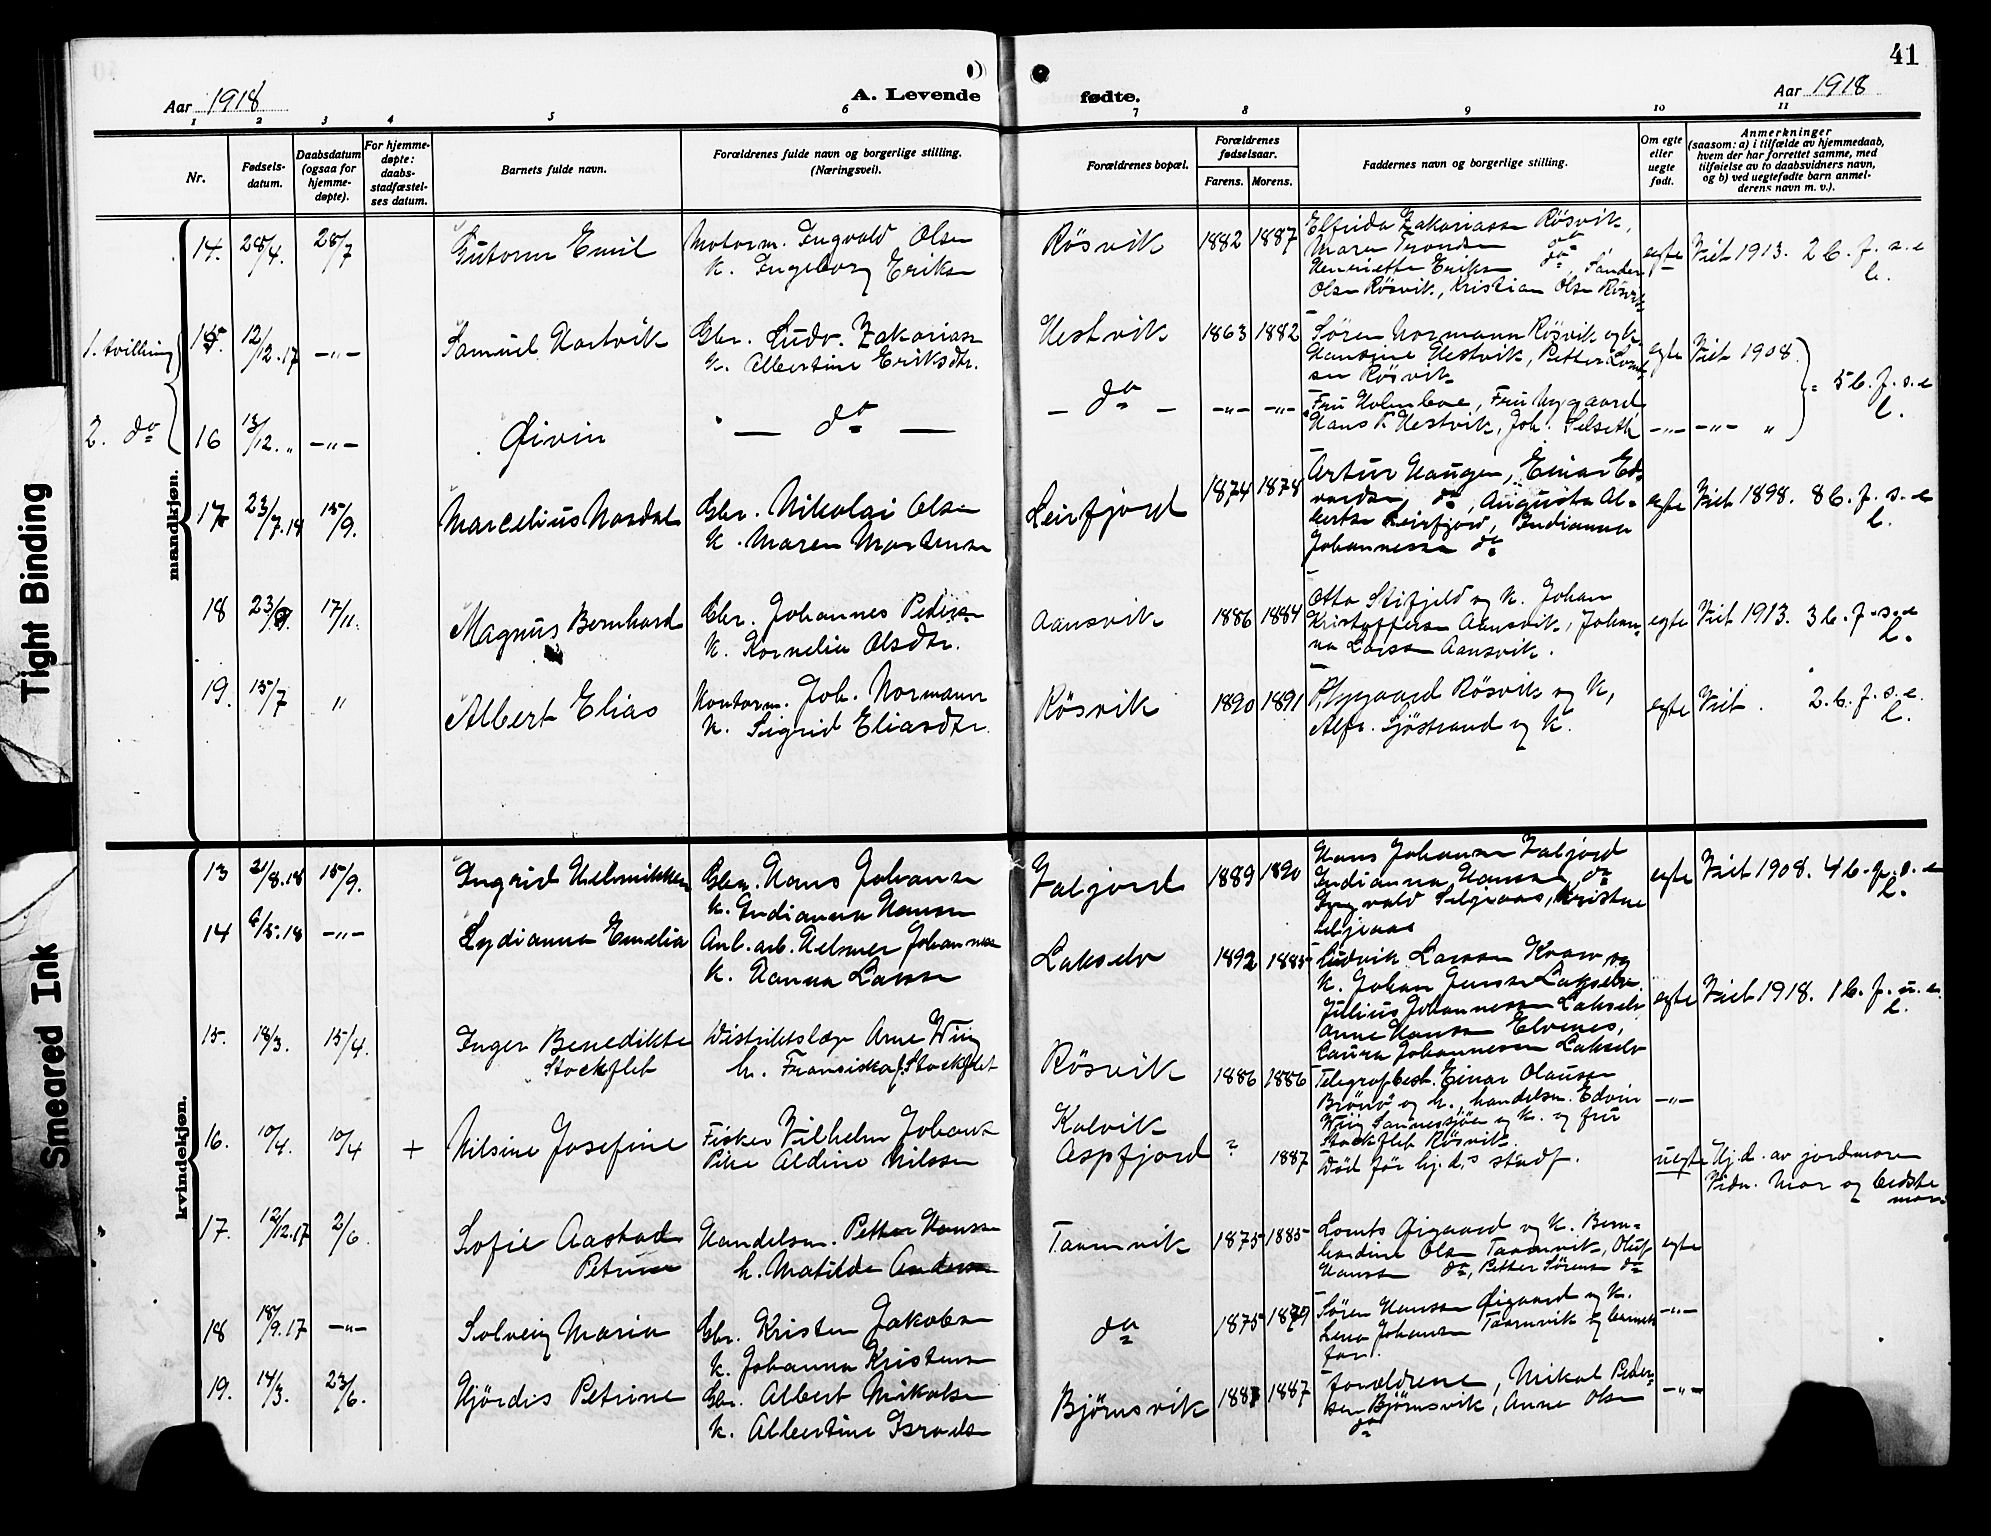 41
Aar 1918
A. Levende fødte.
Aar 1918
1 2 3 4 5 6 7 8 9 10 11
Nr.
Fødsels-
datum.
Daabsdatum
(ogsaa for
hjemme-
døpte).
For hjemme-
døpte:
daabs-
stadfæstel-
ses datum.
Barnets fulde navn.
Forældrenes fulde navn og borgerlige stilling.
(Næringsvei).
Forældrenes bopæl.
Forældrenes
fødselsaar.
Farens. Morens.
Faddernes navn og borgerlige stilling.
Om egte
eller
uegte
født.
Anmerkninger
(saasom: a) i tilfælde av hjemmedaab,
hvem der har forrettet samme, med
tilføielse av to daabsvidners navn,
og b) ved uegtefødte barn anmel-
derens navn m. v.).
mandkjøn.
14. 28/4. 28/7 Gutorm Emil
Motorm. Ingvald Olsen
k. Ingeborg Eriksen
Røsvik 1882 1887
Elfrida Zakariassen Røsvik,
Maren Tronsen do
Henriette Eriksen do, Sander
Olsen Røsvik, Kristian Olsen Røsvik
egte Viet 1913. 2 b. f. s. e
l.
1. tvilling
15. 12/12.17 -"- Samuel Hartvik
Gbr. Ludv. Zakariassen
k. Albertine Eriksdtr.
Hestvik 1863 1882
Søren Normann Røsvik og k.
Hansine Hestvik, Petter
Røsvik
egte Viet 1908. = 5 b. f. s. e
l.
2. do
16 13/12. " -"- Øivin
- do -
- do - -"- -"-
Fru Holmboe, Fru Nygaard
Hans Hestvik, Joh. Selseth
-"- -"- "
17 23/7.18 15/9. Marcelius Nordal
Gbr. Nikolai Olsen
k. Maren Mortensen
Leirfjord 1874 1878
Artur Haugen, Einar Ed-
vardsen do, Augusta Al-
bertsen Leirfjord, Indianna
Johannessen do
egte Viet 1898. 8 b. f. s. e
l.
18 23/8. 17/11. Magnus Bernhard
Gbr. Johannes Pedersen
k. Kornelia Olsdtr.
Aansvik 1886 1884
Otto Stifjeld og k. Johan
Kristoffersen Aansvik, Johan-
na Larsen Aansvik.
egte Viet 1913. 3 b. f. s. e
l.
19. 15/7 " Albert Elias
Kontorm. Joh. Normann
k. Sigrid Eliasdtr.
Røsvik 1890 1891
Nygaard Røsvik og k,
Alfr. Sjøstrand og k.
egte Viet. 2. b. f. s. e.
l.
kvindekjøn.
13 21/8.18 15/9. Ingrid Helmikken
Gbr. Hans Johansen
k. Indianna Hansen
Valjord 1889 1890
Hans Johansen Valjord
Indianna Hansen do
Ingvald Seljeaas, Kristine
Seljeaas
egte Viet 1908. 4 b. f. s. e
l.
14 6/5.18 -"- Lydianna Emelia
Anl. arb. Helmer Johannessen
k. Hanna Larsen
Lakselv 1892 1885
Ludvik Larsen Kvarv og
k. Johan Jensen Lakselv
Julius Johannessen Lakselv
Anne Hansen Elvenes,
Laura Johannessen Lakselv
egte Viet 1918. 1 b. f. u. e.
l.
15. 18/3. 15/4. Inger Benedikte
Stockflet
Distriktslæge Arne Wiig
h. Fransiska f. Stockflet
Røsvik 1886 1886
Telegrafbest. Einar Olausen
Brønø og h. handelsm. Edvin
Wiig Sannessjøen og k. og fru
Stockflet Røsvik.
-"-
16. 10/4. 10/4 + Nilsine Josefine
Fisker Vilhelm Johans
Pike Aldine Nilssen
Kalvik
Aspfjord ? 1887
Død før hj. d.s stadf.
uegte Hj.d. av jordmoren
Vidn. Mor og bedste
mor
17. 12/12.17 2/6. Sofie Aastad
Petrine
Handelsm. Petter Hansen
h. Matilde Andersen
Taarnvik 1875 1885
Lorents Øigaard og k. Bern-
hardine Olsen Taarnvik, Oluf
Hansen do, Petter Sørensen do
egte
18 18/9.17 -"- Solveig Maria
Gbr. Kristen Jakobsen
k. Johanna Kristensen
do 1875 1879
Søren Hansen Øigaard og k.
Lena Johansen Taarnvik og barnets
far.
-"-
19. 14/3. 23/6. Hjørdis Petrine
Gbr. Albert Mikalsen
k. Albertine Israelsen
Bjørnsvik 1887 1887
Forældrene, Mikal Peder-
sen Bjørnsvik, Anna Olsen
do
-"-
Tight Binding
Smeared Ink